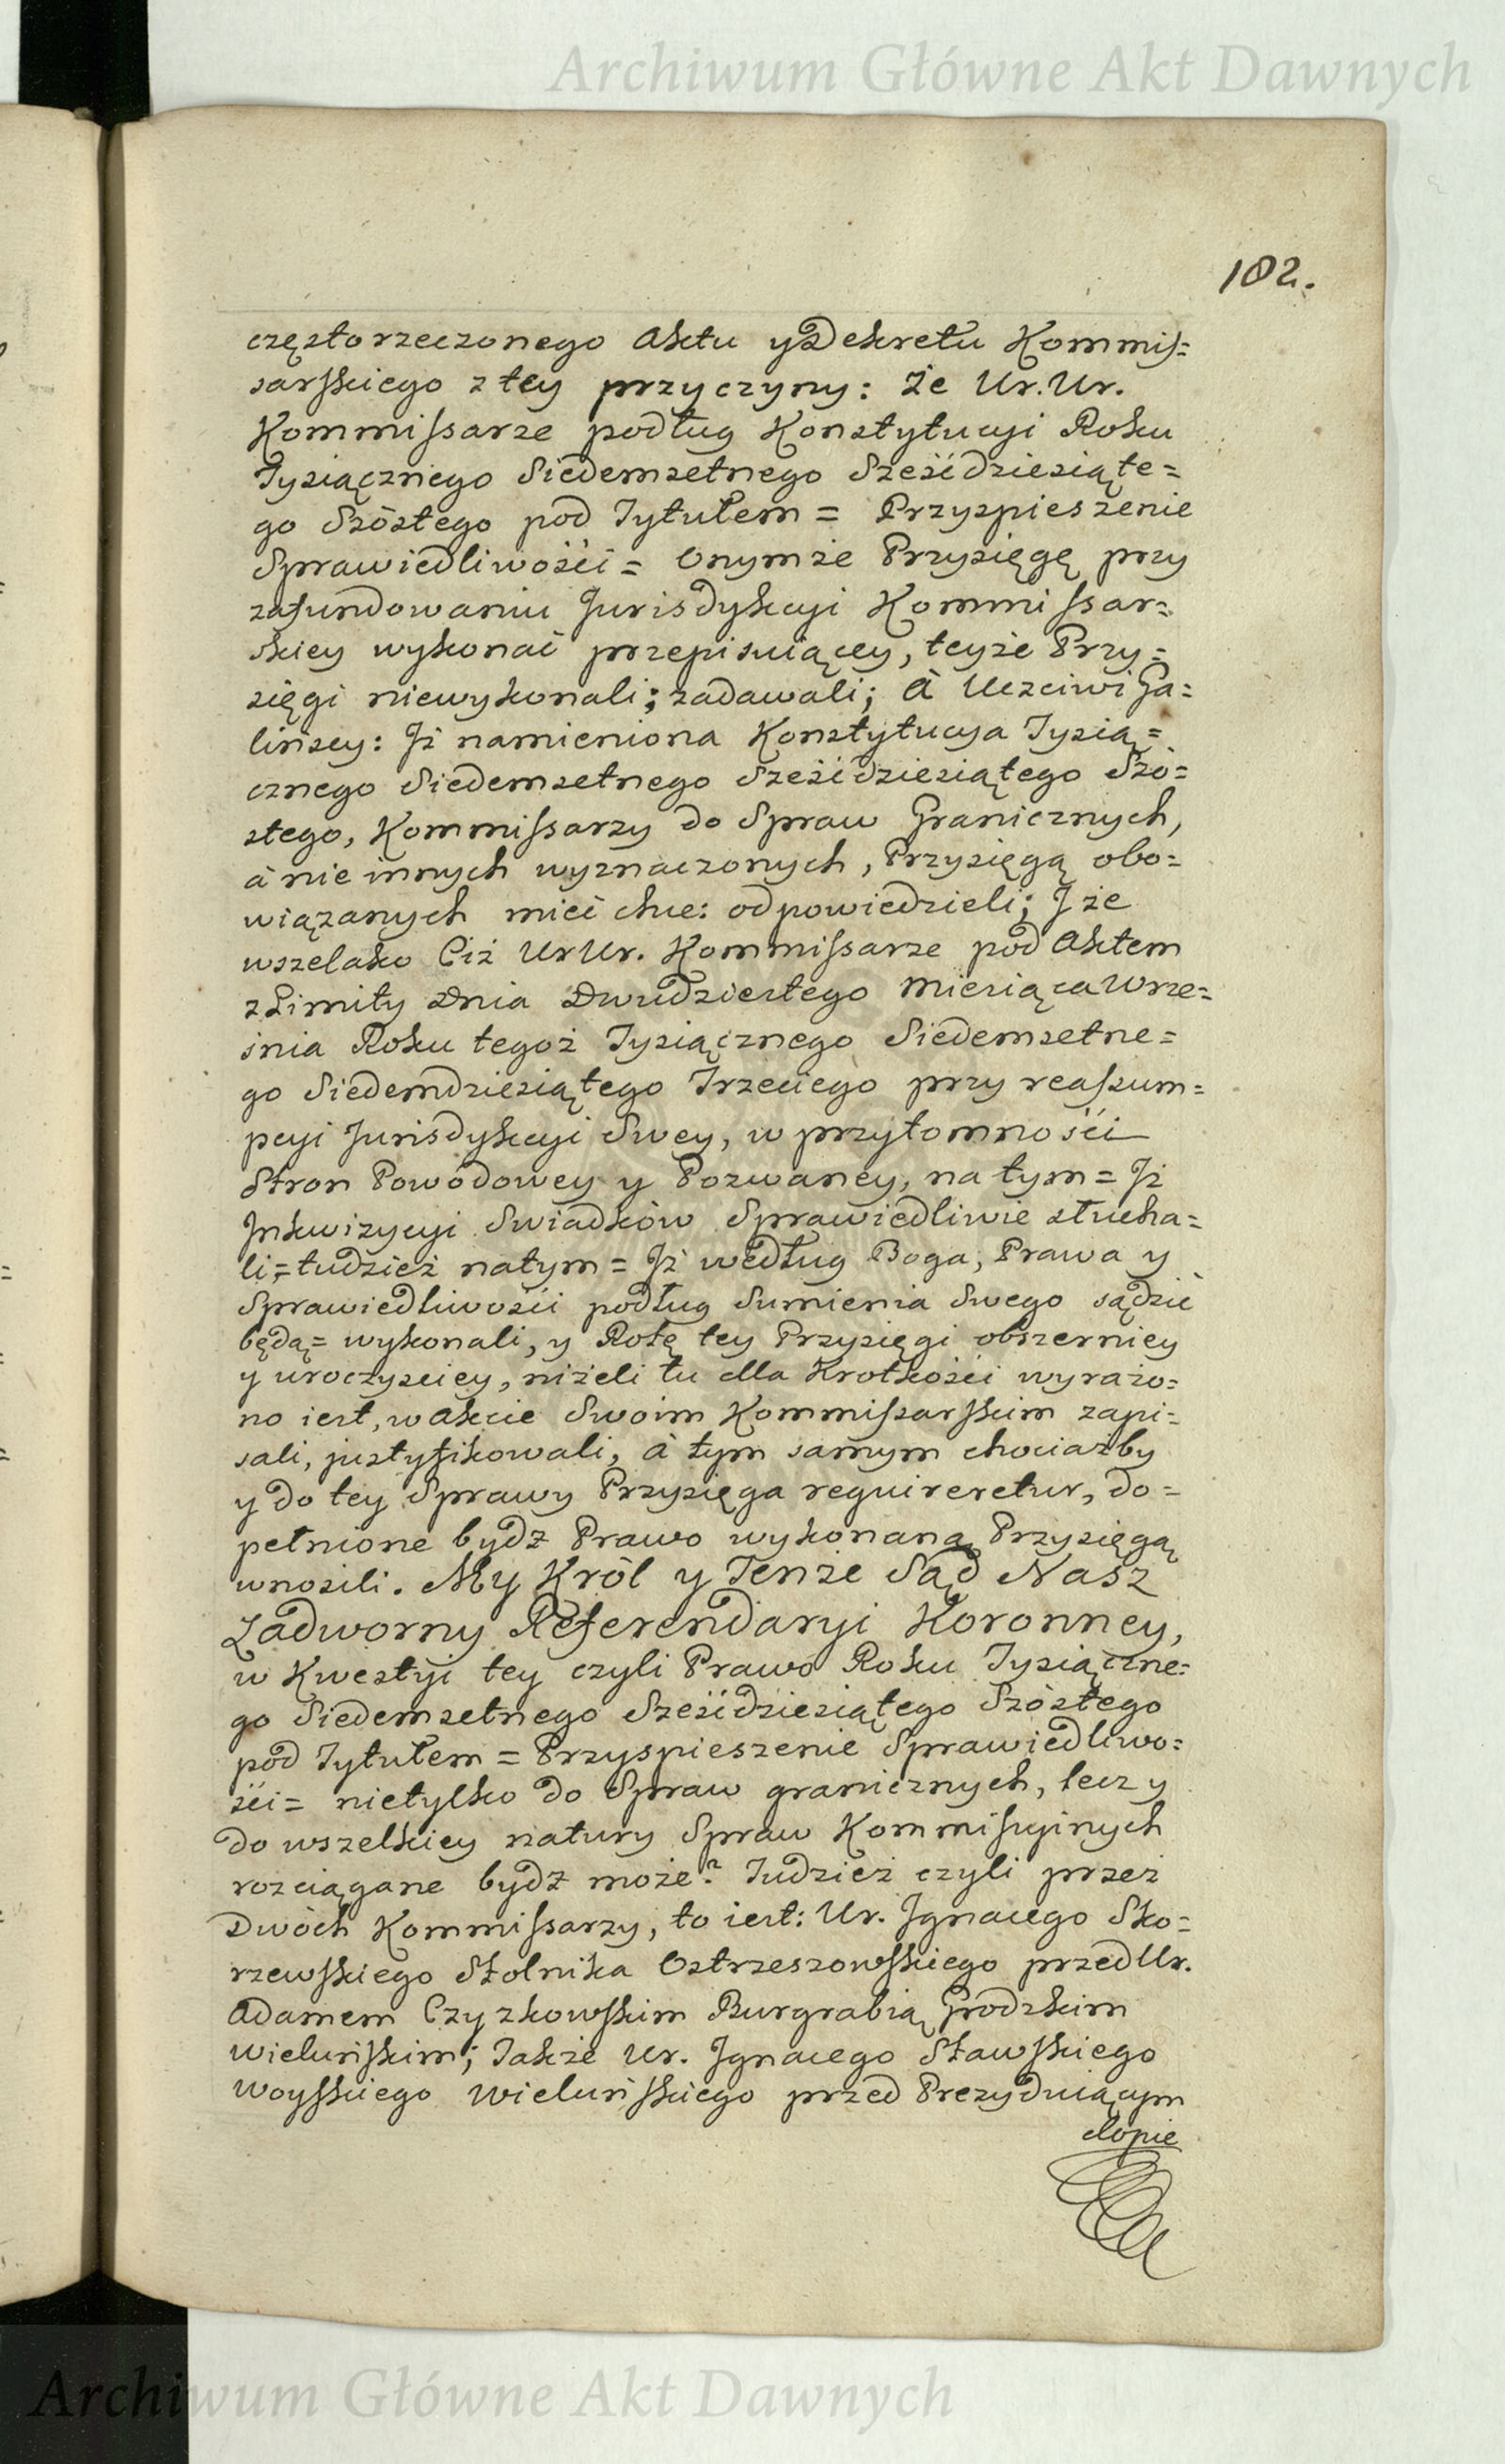 Archiwum Główne Akt Dawnych
182.
częstorzeczonego Aktu y Dekretu Kommis=
sarskiego z tey przyczyny: że Ur. Ur.
Kommissarze podług Konstytucyi Roku
Tysiącznego Siedemsetnego Sześćdziesiąte=
go Szóstego pod Tytułem = Przyspieszenie
Sprawiedliwości = Onymże Przysięgę przy
zafundowaniu Jurisdykcyi Kommissar=
skiey wykonać przepisuiącey, teyże Przy=
sięgi niewykonali; zadawali; à Uczciwi Ga=
lińscy: Iż namieniona Konstytucya Tysią=
cznego Siedemsetnego Sześćdziesiątego Szó=
stego, Kommissarzy do Spraw Granicznych,
à nie innych wyznaczonych, Przysięgą obo=
wiązanych mieć chce: odpowiedzieli; I że
wszelako Ciż Ur Ur. Kommissarze pod Aktem
z Limity Dnia Dwudziestego Miesiąca Wrze=
śnia Roku tegoż Tysiącznego Siedemsetne=
go Siedemdziesiątego Trzeciego przy reassum=
pcyi Jurisdykcyi Swey, w przytomności
Stron Powodowey y Pozwaney, na tym = Iż
Inkwizycyi Swiadków Sprawiedliwie słucha=
li,= tudzież natym = Iż według Boga, Prawa y
Sprawiedliwości podług Sumienia Swego sądzić
będą= wykonali, y Rotę tey Przysięgi obszerniey
y uroczyściey, niżeli tu dla Krotkości wyrażo=
no iest, w Akcie Swoim Kommissarskim zapi=
sali, justyfikowali, à tym samym chociażby
y do tey Sprawy Przysięga requireretur, do=
pełnione bydź Prawo wykonaną Przysięgą
wnosili. My Król y Tenże Sąd Nasz
Zadworny Referendaryi Koronney,
w Kwestyi tey czyli Prawo Roku Tysiączne=
go Siedemsetnego Sześćdziesiątego Szóstego
pod Tytułem = Przyspieszenie Sprawiedliwo=
ści= nietylko do Spraw granicznych, lecz y
do wszelkiey natury Spraw Kommissyinych
rozciągane bydź może? Tudzież czyli przez
Dwóch Kommissarzy, to iest: Ur. Ignacego Sko=
rzewskiego Stolnika Ostrzeszowskiego przed Ur.
Adamem Czyzkowskim Burgrabią Grodzkim
Wieluńskim; Także Ur. Ignacego Stawskiego
Woyskiego Wieluńskiego przed Prezyduiącym
dopie
Archiwum Główne Akt Dawnych